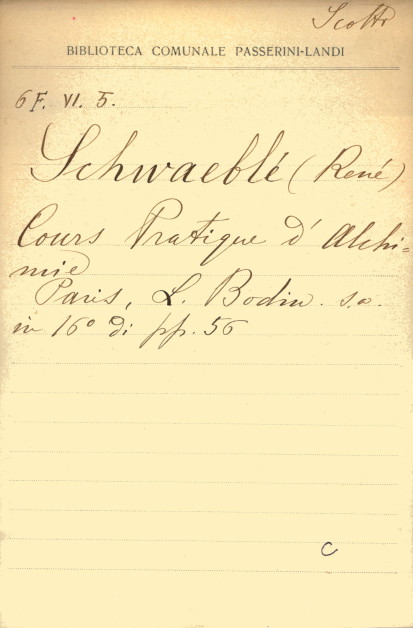 Scotti
BIBLIOTECA COMUNALE PASSERINI-LANDI
6F. VI. 5.
Schwaeblé (René)
Cours Pratique d'Alchi=
mie
Paris, L. Bodin. s.a.
in 16° di pp. 56
C